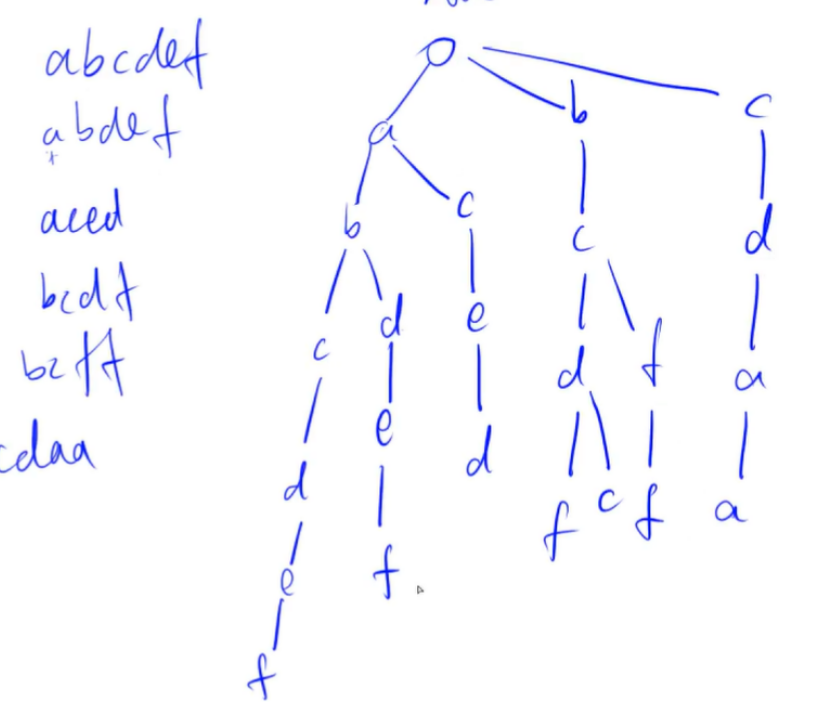 abcdef
abdef
aced
bcdf
bcff
cdaa
a b c
b c c d
c d e d f a
d e d f c f a
e f
f